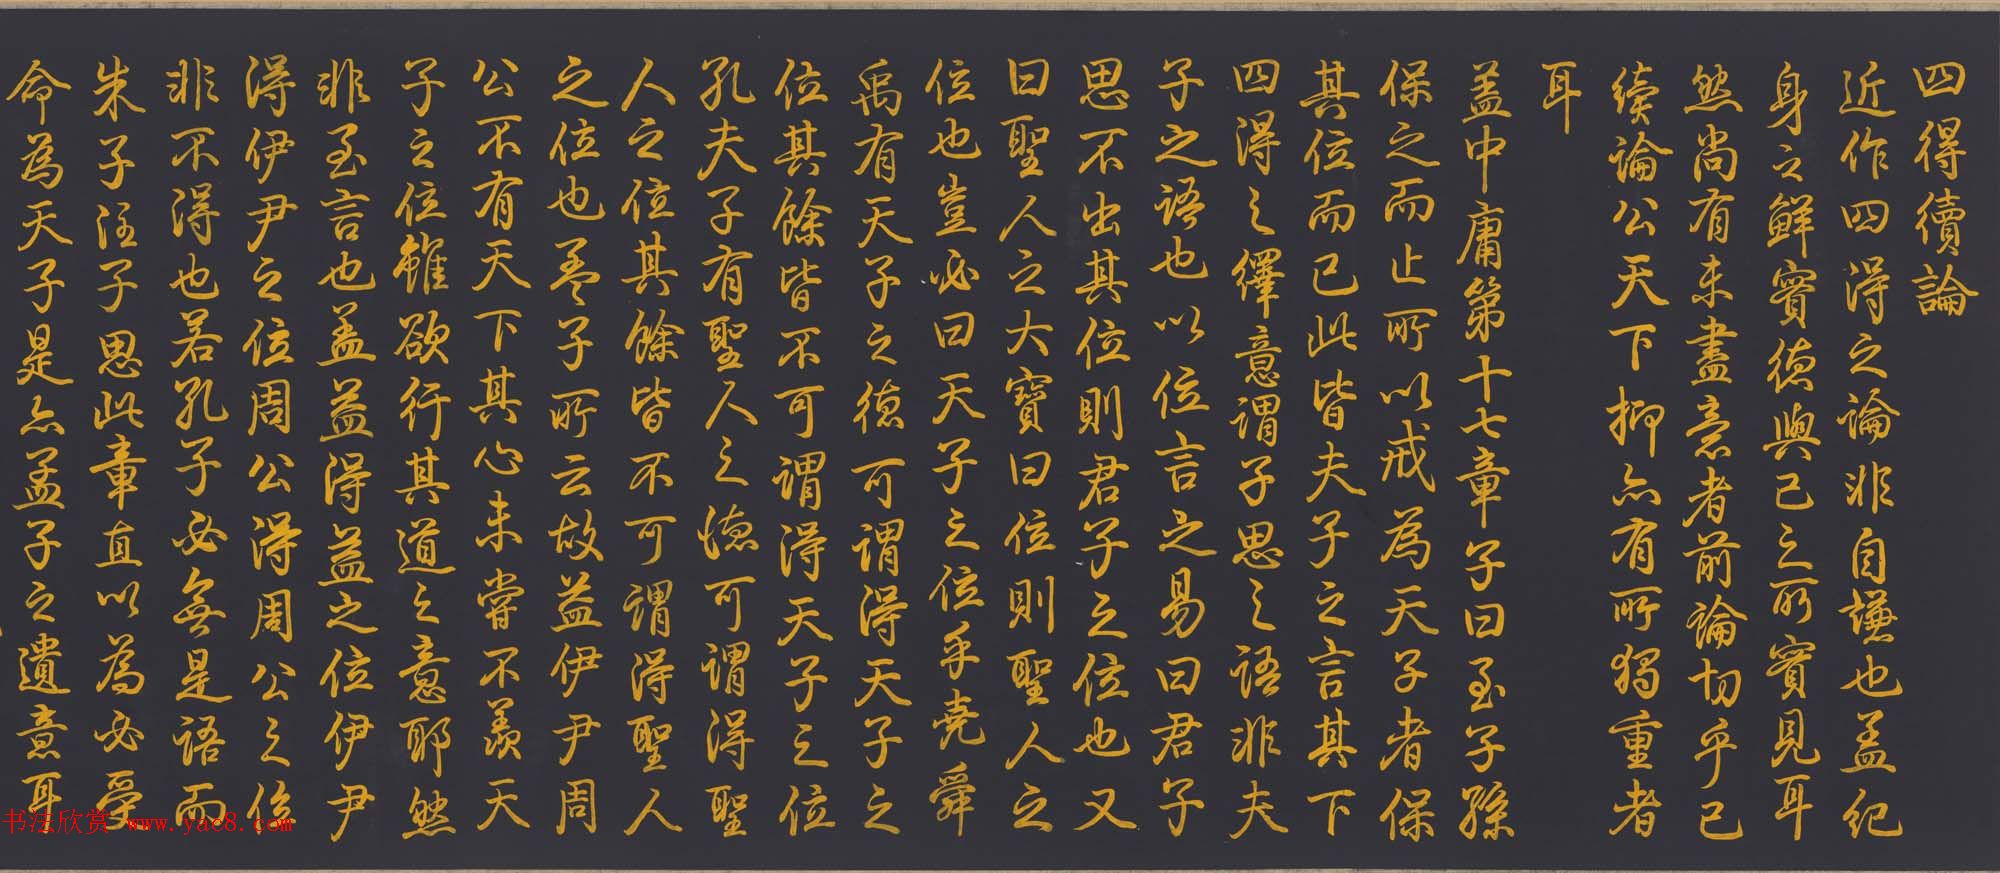 四得續論
近作四得之論非自謙也蓋紀
身之鮮實德與己之所實見耳
然尚有未盡意者前論切乎己
續論公天下抑亦有所獨重者
耳
蓋中庸第十七章子曰至子孫
保之而止所以戒為天子者保
其位而已此皆夫子之言其下
四得之繹意謂子思之語非夫
子之語也以位言之易曰君子
思不出其位則君子之位也又
曰聖人之大寶曰位則聖人之
位也豈必曰天子之位乎堯舜
禹有天子之德可謂得天子之
位其餘皆不可謂得天子之位
孔夫子有聖人之德可謂得聖
人之位其餘皆不可謂得聖人
之位也孟子所云故益伊尹周
公不有天下其心未嘗不羨天
子之位雖欲行其道之意耶然
非至言也蓋益得益之位伊尹
得伊尹之位周公得周公之位
非不得也若孔子必無是語而
朱子注子思此章直以為必受
命為天子是亦孟子之遺意耳
书法欣赏 www.yac8.com